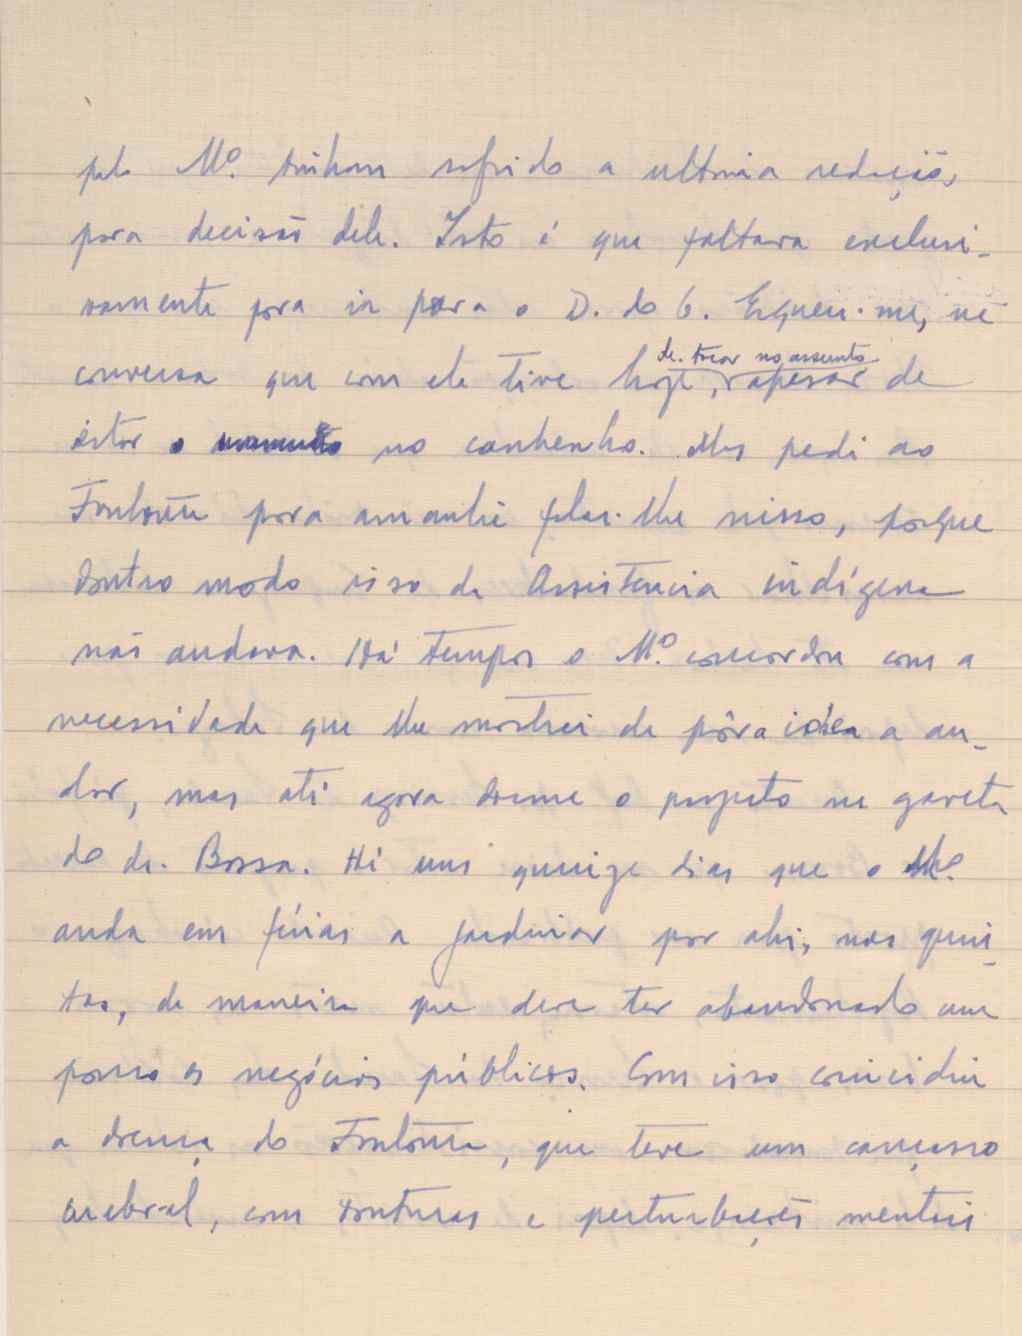 pelo Mº. tinham sofrido a ultima redação,
para decisão dele. Isto é que faltava exclusi-
vamente pra ir para o D. do G. Esqueci-me, na
de. tocar no assunto
conversa que com ele tive hoje, apesar de
estar o no canhenho. Mas pedi ao
Fontoura para amanhã falar-lhe nisso, porque
doutro modo isso da Assistencia indígena
não andava. Há tempos o Mº. concordou com a
necessidade que lhe mostrei de pôr a idéa a an-
dar, mas até agora dorme o projeto na gaveta
do dr. Bossa. Há uns quinze dias que o Mº.
anda em férias a jardinar por ahi, nas quin-
tas, de maneira que deve ter abandonado um
pouco os negócios públicos. Com isso coincidiu
a doença do Fontoura, que teve um cansasso
cerebral, com tonturas e perturbações mentais